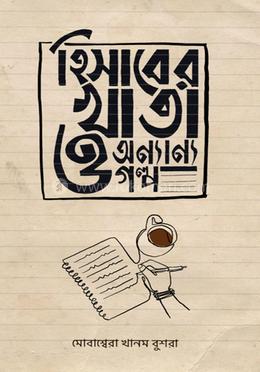 হিসাবের
খাতা
ও অন্যান্য
গল্প
মোবাশ্বেরা খানম বুশরা